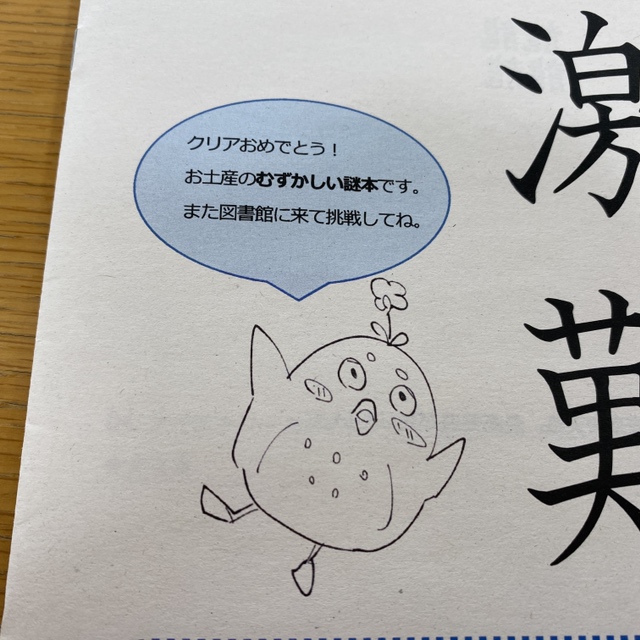 クリアおめでとう！
お土産のむずかしい謎本です。
また図書館に来て挑戦してね。